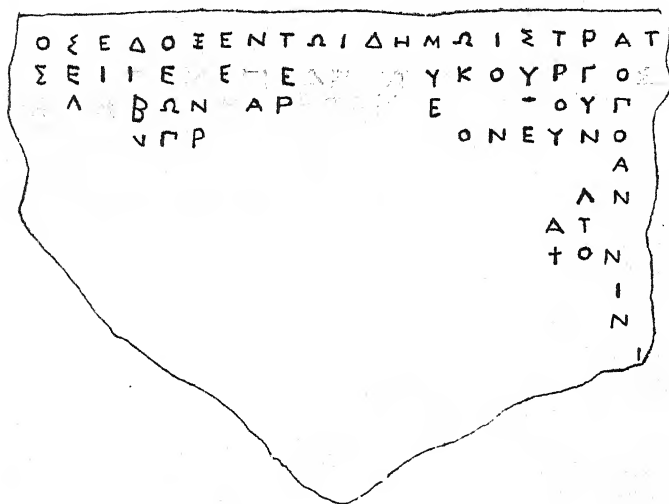 ΟΣΕΔΟΞΕΝΤΩΙΔΗΜΩΙΣΤΡΑΤ
ΣΕΙΙΕΕ Ε Ε Υ ΚΟΥΡΓΟ
Λ ΒΩΝ ΑΡ Ε ΟΥΠ
ΠΡ ΟΝΕΥΝΟ
Α
ΛΝ
ΑΤ
ΤΟΝ
Ι
Ν
Ι